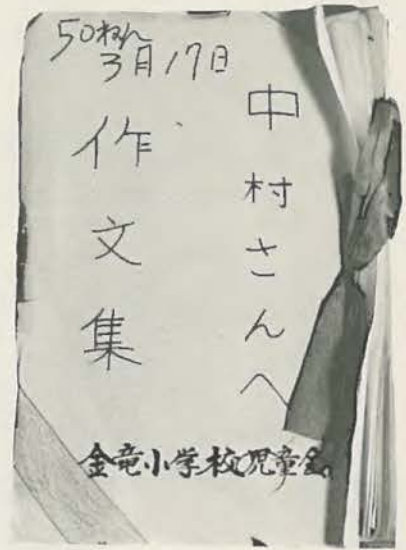 50ねん
3月17日
中村さんへ
作文集
金竜小学校児童会